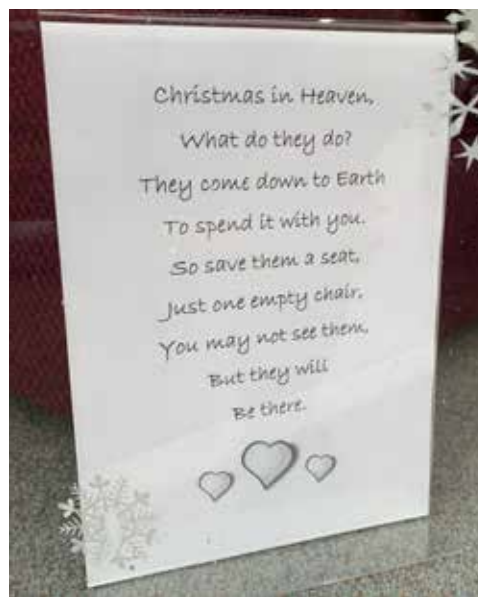 Christmas in Heaven,
What do they do?
They come down to Earth
To spend it with you.
So save them a seat,
Just one empty chair,
You may not see them,
But they will
Be there.